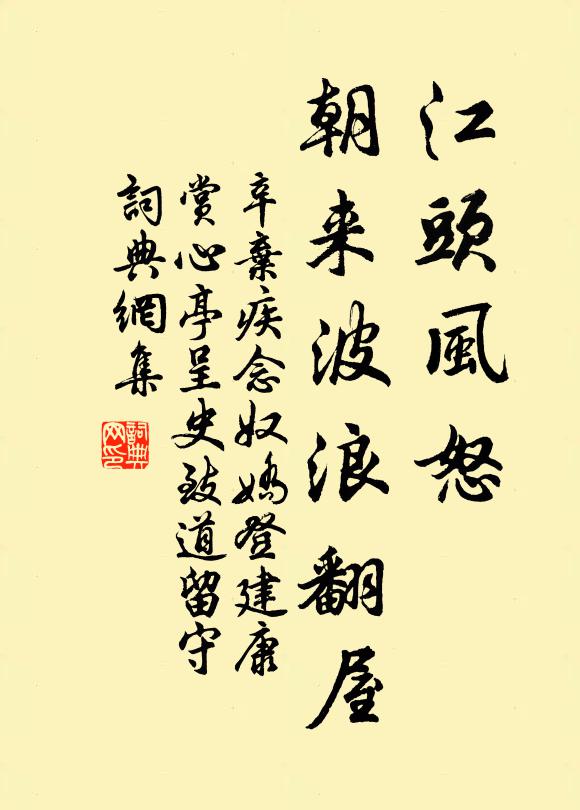 江頭風怒
朝来波浪翻屋
辛棄疾念奴嬌登建康
賞心亭呈史致道留守
詞典網集
詞典
网印